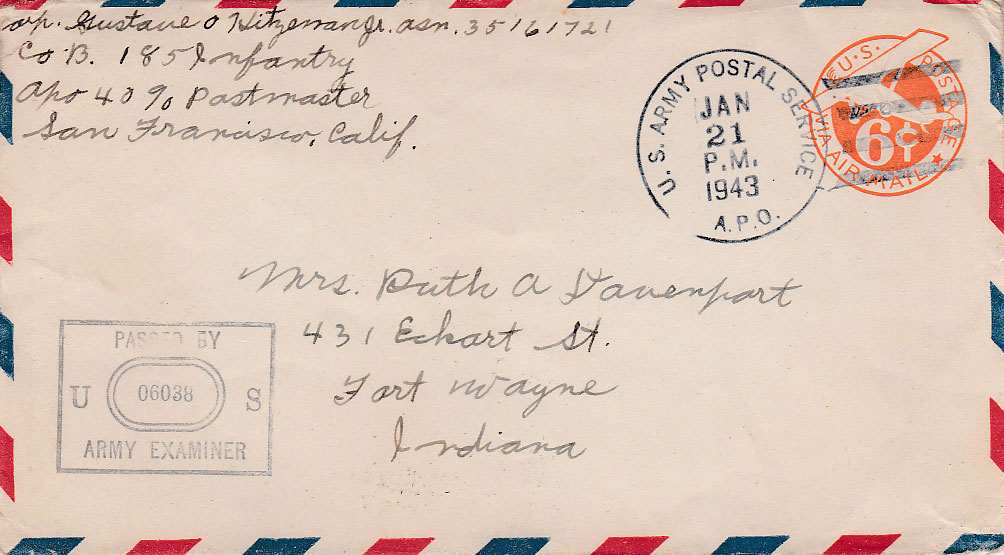 Cp. Gustave O Hitzeman Jr. asn. 35161721
Co B. 185 Infantry
Apo 40 % Postmaster
San Francisco, Calif.
U. S. ARMY POSTAL SERVICE
JAN
21
P.M.
1943
A.P.O.
U.S. POSTAGE
6¢
VIA AIR MAIL
Mrs. Ruth A Davenport
431 Eckart St.
Fort Wayne
Indiana
PASSED BY
U 06038 S
ARMY EXAMINER